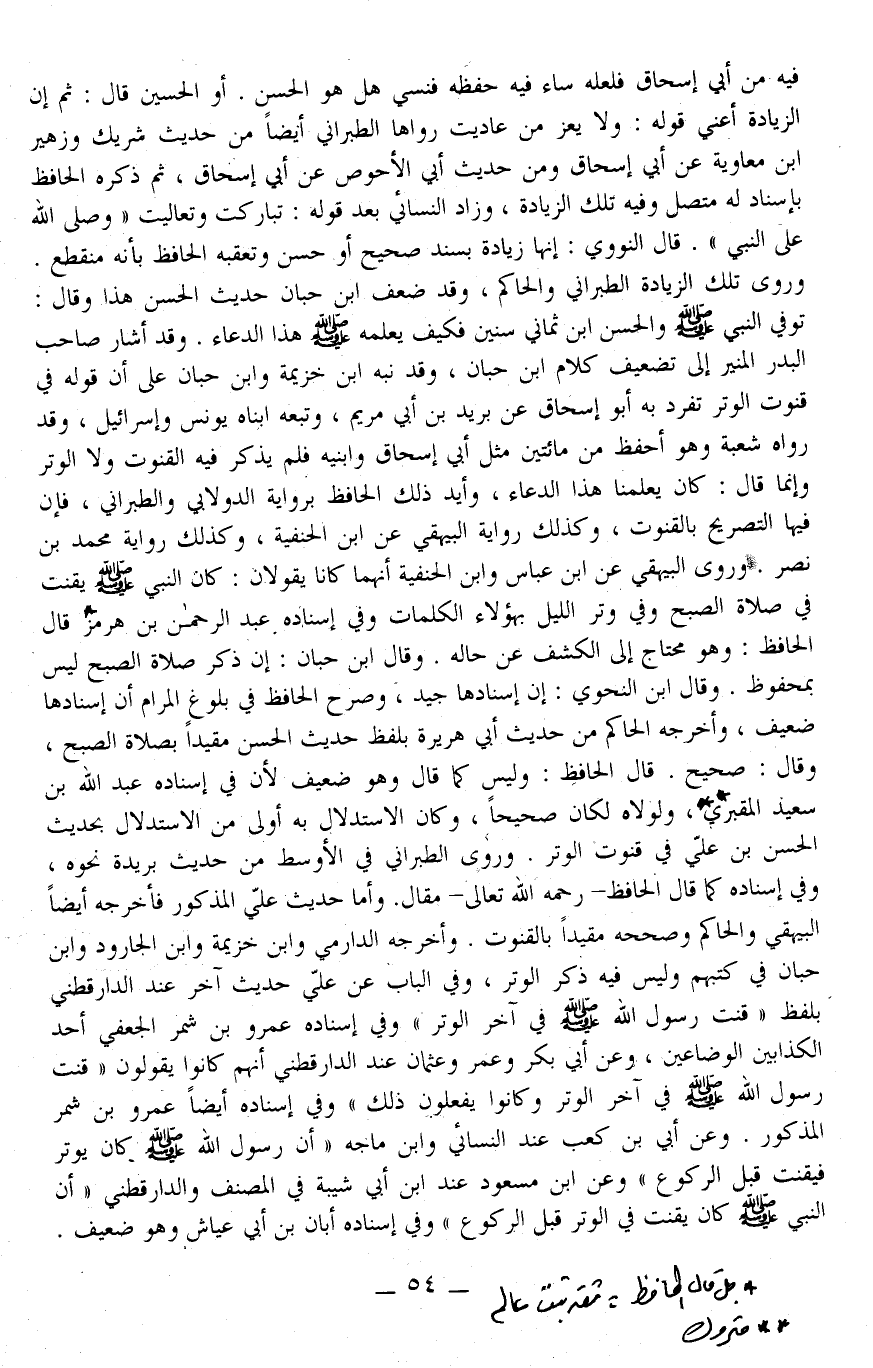 فيه من أبي إسحاق فلعله ساء فيه حفظه فنسي هل هو الحسن . أو الحسين قال : ثم إن
الزيادة أعني قوله : ولا يعز من عاديت رواها الطبراني أيضاً من حديث شريك وزهير
ابن معاوية عن أبي إسحاق ومن حديث أبي الأحوص عن أبي إسحاق ، ثم ذكره الحافظ
بإسناد له متصل وفيه تلك الزيادة ، وزاد النسائي بعد قوله : تباركت وتعاليت « وصلى الله
على النبي » . قال النووي : إنها زيادة بسند صحيح أو حسن وتعقبه الحافظ بأنه منقطع .
وروى تلك الزيادة الطبراني والحاكم ، وقد ضعف ابن حبان حديث الحسن هذا وقال :
توفي النبي ﷺ والحسن ابن ثماني سنين فكيف يعلمه ﷺ هذا الدعاء . وقد أشار صاحب
البدر المنير إلى تضعيف كلام ابن حبان ، وقد نبه ابن خزيمة وابن حبان على أن قوله في
قنوت الوتر تفرد به أبو إسحاق عن بريد بن أبي مريم ، وتبعه ابناه يونس وإسرائيل ، وقد
رواه شعبة وهو أحفظ من مائتين مثل أبي إسحاق وابنيه فلم يذكر فيه القنوت ولا الوتر
وإنما قال : كان يعلمنا هذا الدعاء ، وأيد ذلك الحافظ برواية الدولابي والطبراني ، فإن
فيها التصريح بالقنوت ، وكذلك رواية البيهقي عن ابن الحنفية ، وكذلك رواية محمد بن
نصر . وروى البيهقي عن ابن عباس وابن الحنفية أنهما كانا يقولان : كان النبي ﷺ يقنت
في صلاة الصبح وفي وتر الليل بهؤلاء الكلمات وفي إسناده عبد الرحمٰن بن هرمز* قال
الحافظ : وهو محتاج إلى الكشف عن حاله . وقال ابن حبان : إن ذكر صلاة الصبح ليس
بمحفوظ . وقال ابن النحوي : إن إسنادها جيد ، وصرح الحافظ في بلوغ المرام أن إسنادها
ضعيف ، وأخرجه الحاكم من حديث أبي هريرة بلفظ حديث الحسن مقيداً بصلاة الصبح ،
وقال : صحيح . قال الحافظ : وليس كما قال وهو ضعيف لأن في إسناده عبد الله بن
سعيد المقبري** ، ولولاه لكان صحيحاً ، وكان الاستدلال به أولى من الاستدلال بحديث
الحسن بن عليّ في قنوت الوتر . وروى الطبراني في الأوسط من حديث بريدة نحوه ،
وفي إسناده كما قال الحافظ– رحمه الله تعالى– مقال. وأما حديث عليّ المذكور فأخرجه أيضاً
البيهقي والحاكم وصححه مقيداً بالقنوت . وأخرجه الدارمي وابن خزيمة وابن الجارود وابن
حبان في كتبهم وليس فيه ذكر الوتر ، وفي الباب عن عليّ حديث آخر عند الدارقطني
بلفظ « قنت رسول الله ﷺ في آخر الوتر » وفي إسناده عمرو بن شمر الجعفي أحد
الكذابين الوضاعين ، وعن أبي بكر وعمر وعثمان عند الدارقطني أنهم كانوا يقولون « قنت
رسول الله ﷺ في آخر الوتر وكانوا يفعلون ذلك » وفي إسناده أيضاً عمرو بن شمر
المذكور . وعن أبي بن كعب عند النسائي وابن ماجه « أن رسول الله ﷺ كان يوتر
فيقنت قبل الركوع » وعن ابن مسعود عند ابن أبي شيبة في المصنف والدارقطني « أن
النبي ﷺ كان يقنت في الوتر قبل الركوع » وفي إسناده أبان بن أبي عياش وهو ضعيف .
* بل قال الحافظ : ثقة ثبت عالم
– ٥٤ –
** متروك